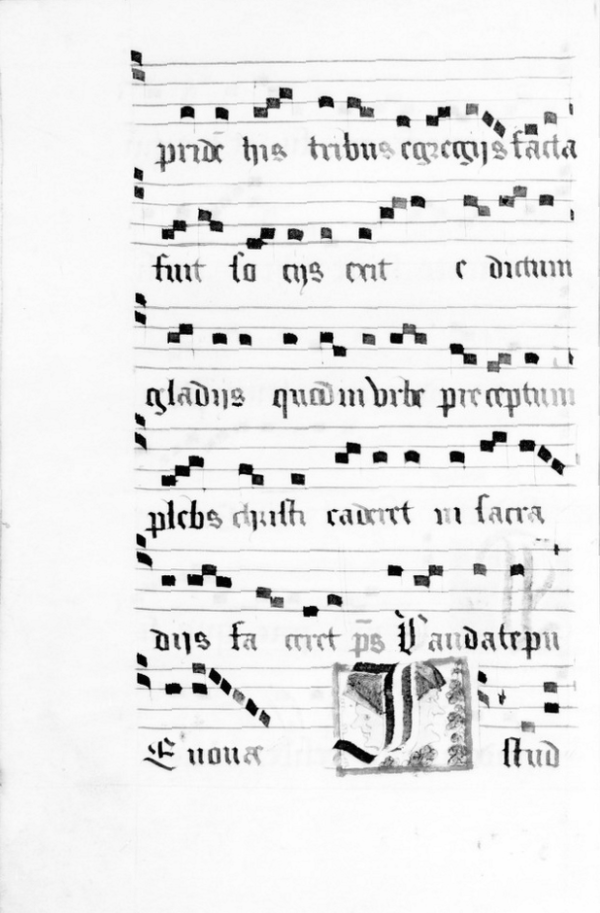 pridē his tribus egregijs facta
fuit so cijs exit e dictum
gladijs quod in vrbe preceptum
plebs christi caderet in sacra
dijs fa ceret p̄s Laudate pu
E uouae Istud